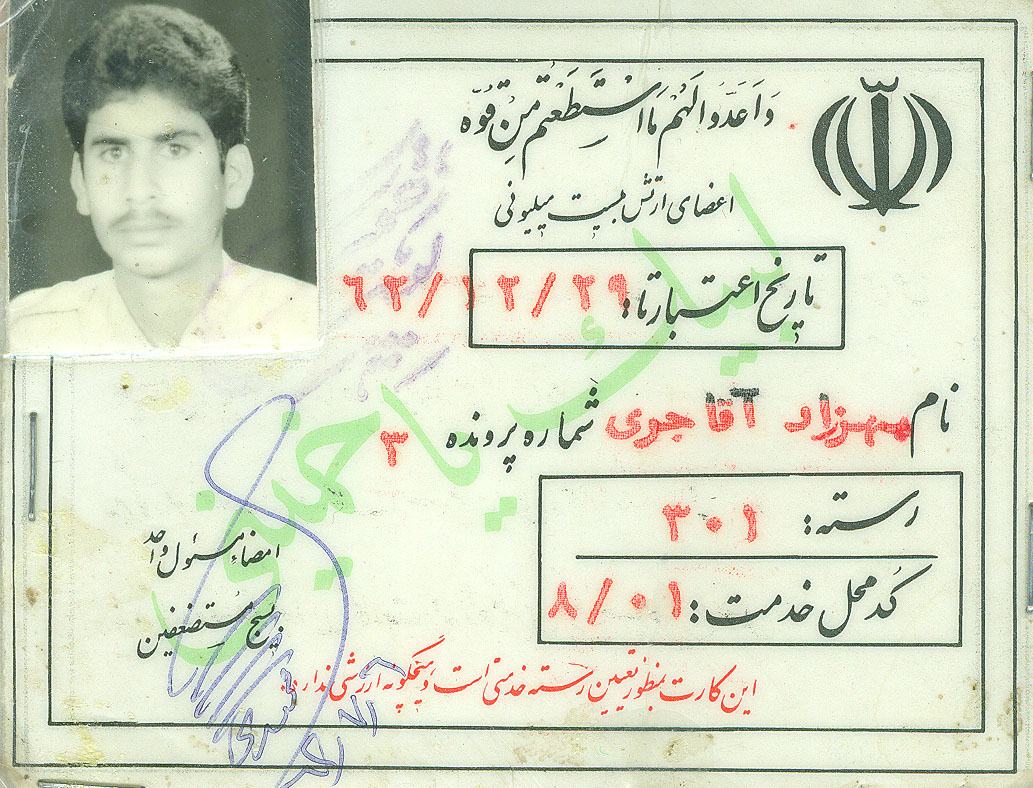 وَاَعَدُّوا لَهُمْ مَا اسْتَطَعْتُمْ مِنْ قُوَّه
اعضای ارتش بیست میلیونی
تاریخ اعتبار تا: ۶۲/۱۲/۲۹
نام بهزاد آقاجری شماره پرونده ۳
رسته: ۳۰۱
کد محل خدمت: ۸/۰۱
لبیک یا خمینی
امضاء مسئول واحد
بسیج مستضعفین
این کارت بمنظور تعیین رسته خدمتی است و هیچگونه ارزشی ندارد.